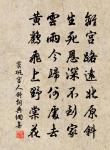 離宮路遠北原斜
生死恩深不到家
雲雨今歸何處去
黃鸝飛上野棠花